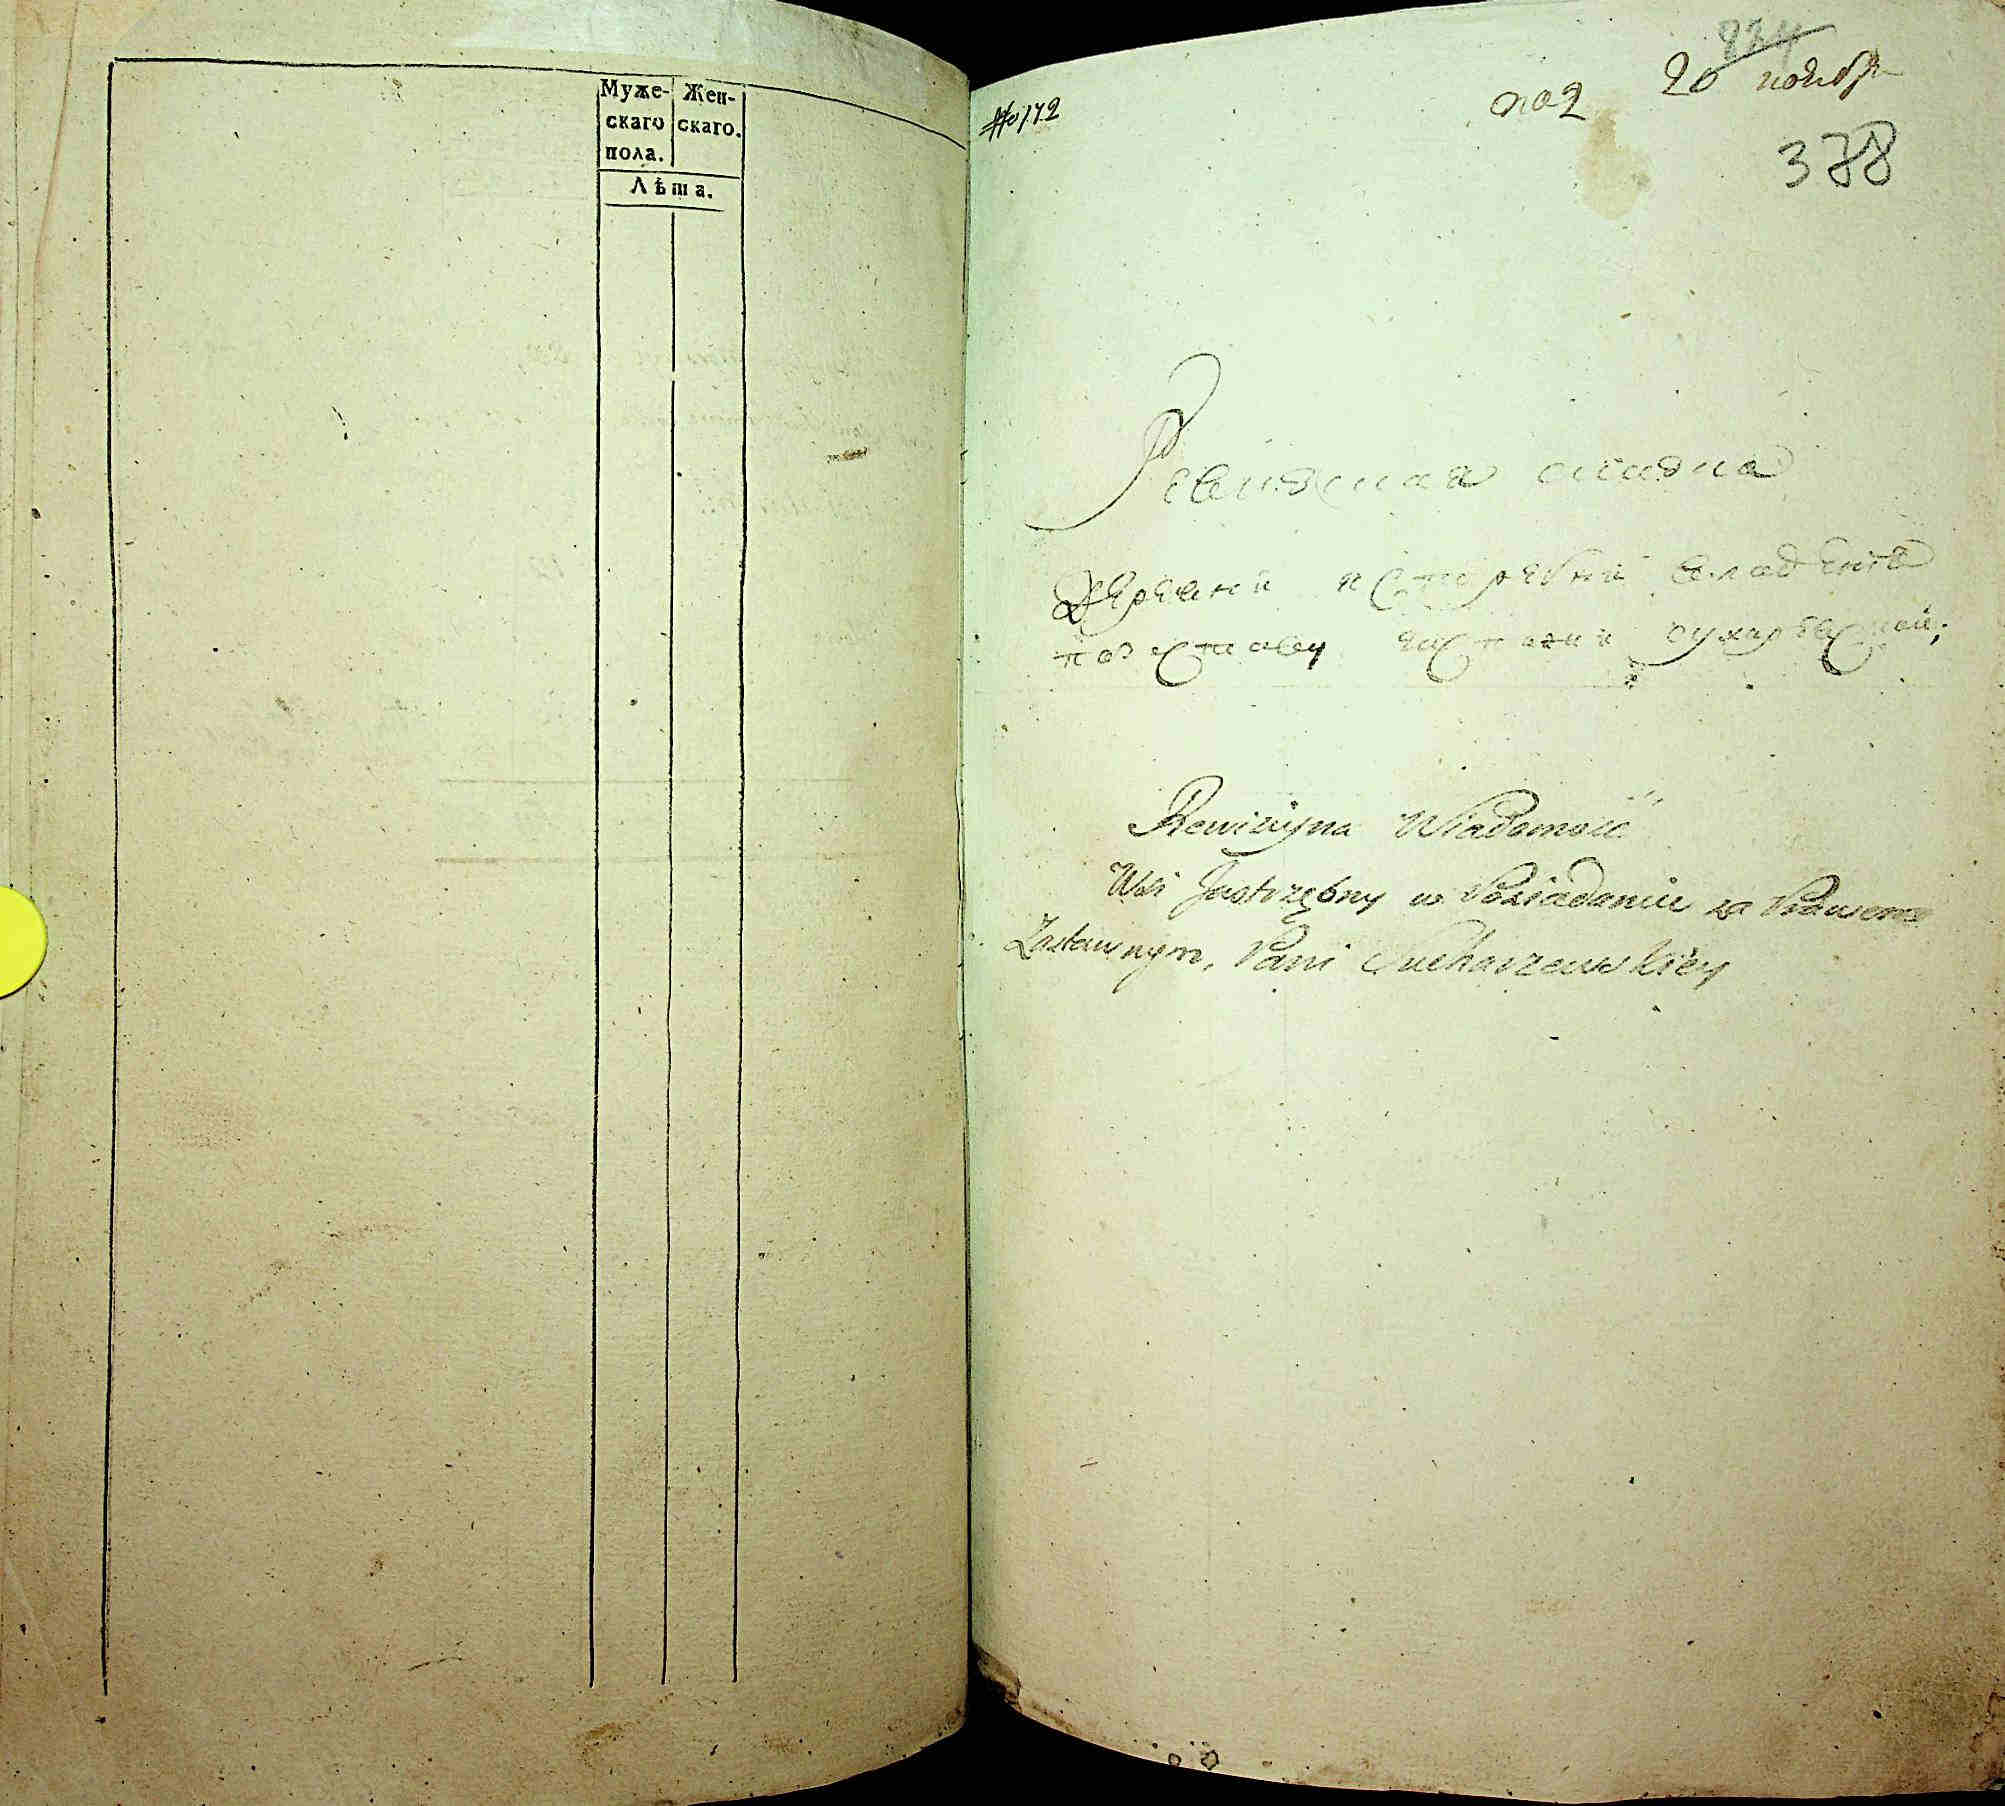 Муже- Жен-
скаго скаго.
пола.
Лѣта.
834
No 172
20 ноября
378
Ревизская сказка
Деревни Ястребни владения
по заставу пани сухаржевской;
Rewizyjna Wiadomość
Wsi Jastrzębny w Posiadaniu za Prawem
Zastawnym, Pani Sucharzewskiey